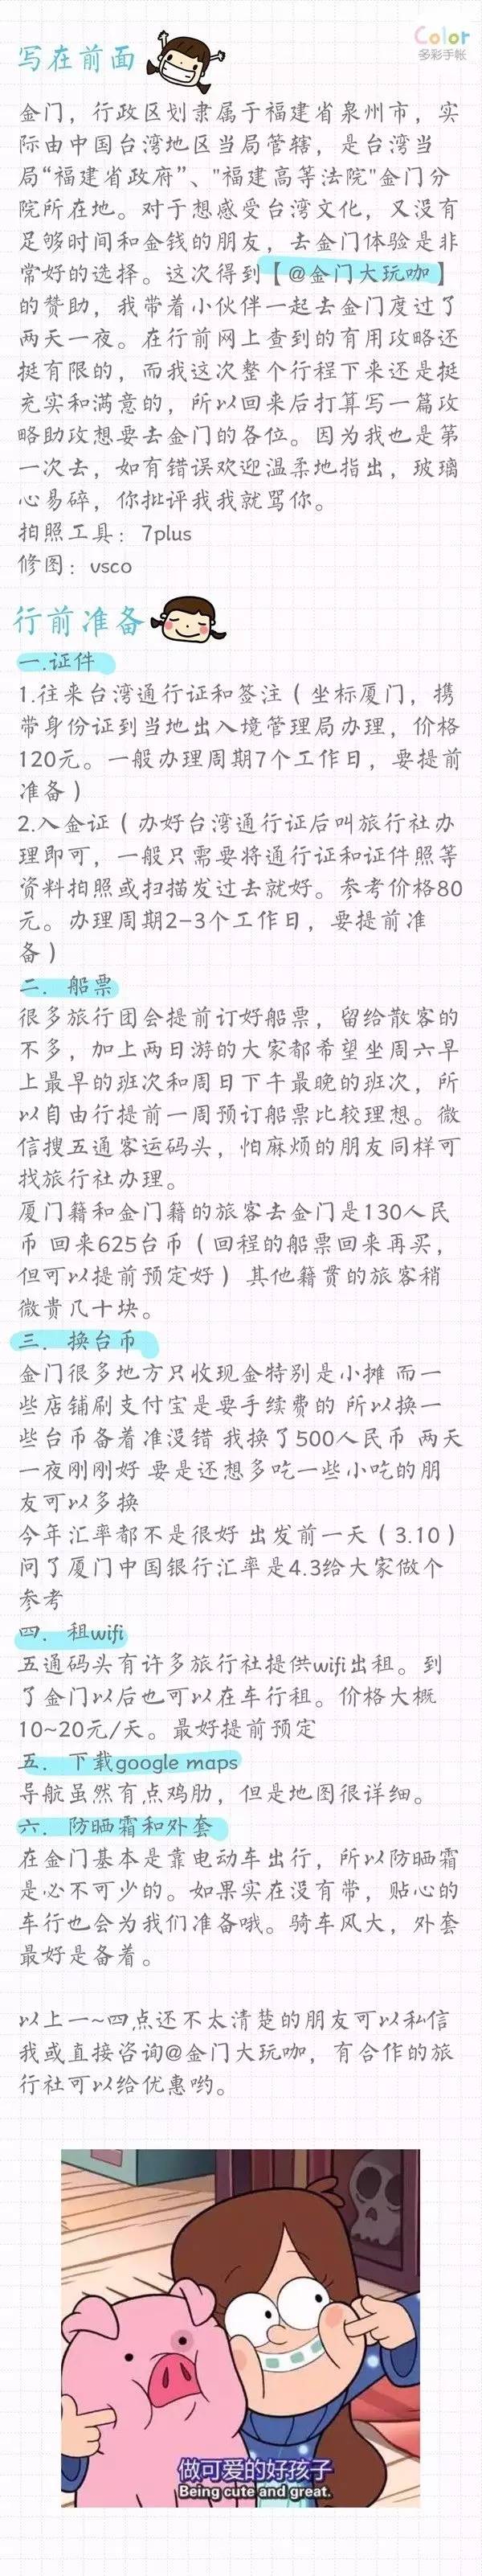 Color
多彩手帐
写在前面
金门，行政区划隶属于福建省泉州市，实
际由中国台湾地区当局管辖，是台湾当
局“福建省政府”、"福建高等法院"金门分
院所在地。对于想感受台湾文化，又没有
足够时间和金钱的朋友，去金门体验是非
常好的选择。这次得到【@金门大玩咖】
的赞助，我带着小伙伴一起去金门度过了
两天一夜。在行前网上查到的有用攻略还
挺有限的，而我这次整个行程下来还是挺
充实和满意的，所以回来后打算写一篇攻
略助攻想要去金门的各位。因为我也是第
一次去，如有错误欢迎温柔地指出，玻璃
心易碎，你批评我我就骂你。
拍照工具：7plus
修图：vsco
行前准备
一.证件
1.往来台湾通行证和签注（坐标厦门，携
带身份证到当地出入境管理局办理，价格
120元。一般办理周期7个工作日，要提前
准备）
2.入金证（办好台湾通行证后叫旅行社办
理即可，一般只需要将通行证和证件照等
资料拍照或扫描发过去就好。参考价格80
元。办理周期2-3个工作日，要提前准
备）
二．船票
很多旅行团会提前订好船票，留给散客的
不多，加上两日游的大家都希望坐周六早
上最早的班次和周日下午最晚的班次，所
以自由行提前一周预订船票比较理想。微
信搜五通客运码头，怕麻烦的朋友同样可
找旅行社办理。
厦门籍和金门籍的旅客去金门是130人民
币 回来625台币（回程的船票回来再买，
但可以提前预定好） 其他籍贯的旅客稍
微贵几十块。
三．换台币
金门很多地方只收现金特别是小摊 而一
些店铺刷支付宝是要手续费的 所以换一
些台币备着准没错 我换了500人民币 两天
一夜刚刚好 要是还想多吃一些小吃的朋
友可以多换
今年汇率都不是很好 出发前一天（3.10）
问了厦门中国银行汇率是4.3给大家做个
参考
四．租wifi
五通码头有许多旅行社提供wifi出租。到
了金门以后也可以在车行租。价格大概
10~20元/天。最好提前预定
五．下载google maps
导航虽然有点鸡肋，但是地图很详细。
六．防晒霜和外套
在金门基本是靠电动车出行，所以防晒霜
是必不可少的。如果实在没有带，贴心的
车行也会为我们准备哦。骑车风大，外套
最好是备着。
以上一~四点还不太清楚的朋友可以私信
我或直接咨询@金门大玩咖，有合作的旅
行社可以给优惠哟。
做可爱的好孩子
Being cute and great.